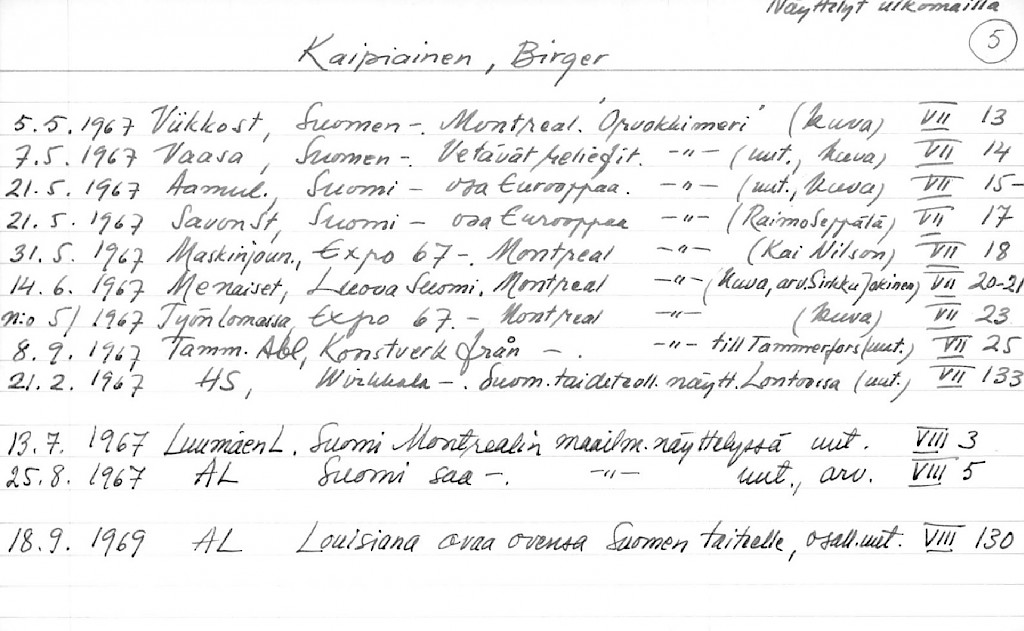 Näyttelyt ulkomailla
5
Kaipiainen, Birger
5.5.1967 Viikkost, Suomen -. Montreal. 'Orvokkimeri' (kuva) VII 13
7.5.1967 Vaasa, Suomen -. Vetävät reliefit. -"- (uut., kuva) VII 14
21.5.1967 Aamul., Suomi - osa Eurooppaa. -"- (uut., kuva) VII 15-
21.5.1967 SavonSt, Suomi - osa Eurooppaa -"- (Raimo Seppälä) VII 17
31.5.1967 Maskinjoun., Expo 67 -. Montreal -"- (Kai Nilson) VII 18
14.6.1967 Menaiset, Luova Suomi. Montreal -"- (kuva, arv. Sirkku Jokinen) VII 20-21
n:o 5/1967 Työn Lomassa, Expo 67. - Montreal -"- (kuva) VII 23
8.9.1967 Tamm. Abl, Konstverk från -. -"- till Tammerfors (uut.) VII 25
21.2.1967 HS, Wirkkala -. Suom. taideteoll. näytt. Lontoossa (uut.) VII 133
13.7.1967 Luumäen L. Suomi Montrealin maailm. näyttelyssä uut. VIII 3
25.8.1967 AL Suomi saa -. -"- uut., arv. VIII 5
18.9.1969 AL Louisiana avaa ovensa Suomen taiteelle, osall. uut. VIII 130